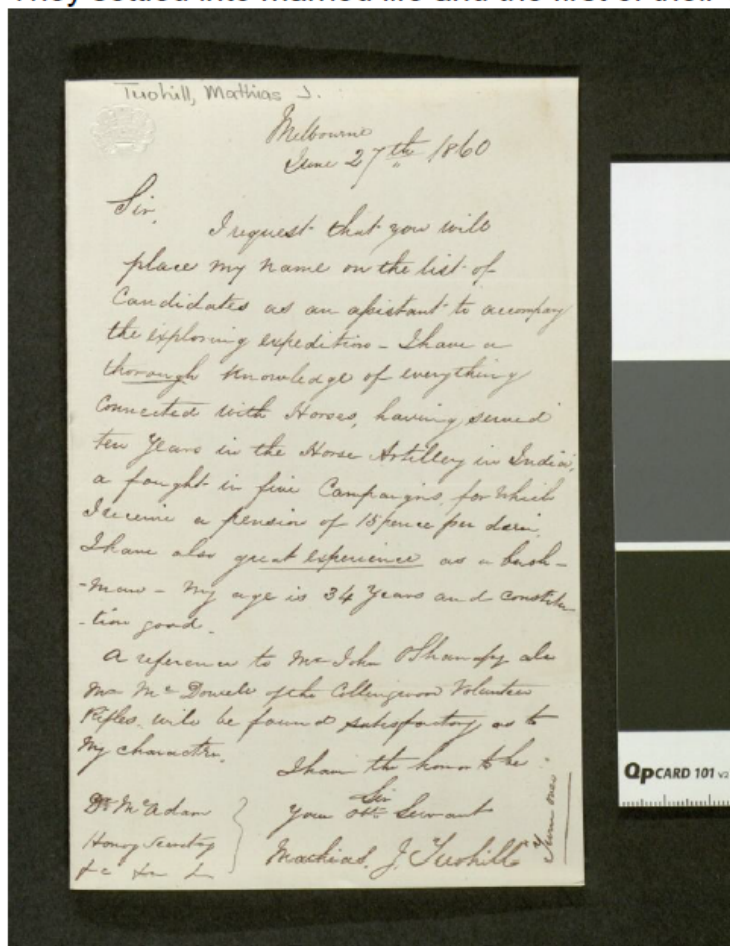 They settled into married life and the first of their
Tuohill, Mathias J.
Melbourne
June 27th 1860
Sir,
I request that you will
place my name on the list of
Candidates as an assistant to accompany
the exploring expedition - I have a
thorough knowledge of everything
Connected with Horses, having served
ten Years in the Horse Artillery in India,
a fought in five Campaigns, for which
I receive a pension of 15 pence per diem.
I have also great experience as a bush-
-man - My age is 34 Years and Constitu-
-tion good.
A reference to Mr John O'Shanassy also
Mr McDowell of the Collingwood Volunteer
Rifles will be found satisfactory as to
My character.
I have the honor to be
Sir
Your Obt Servant
Mathias. J. Tuohill
Dr McAdam
Honory Secretary
&c &c &c
Turn over
QPCARD 101 v2